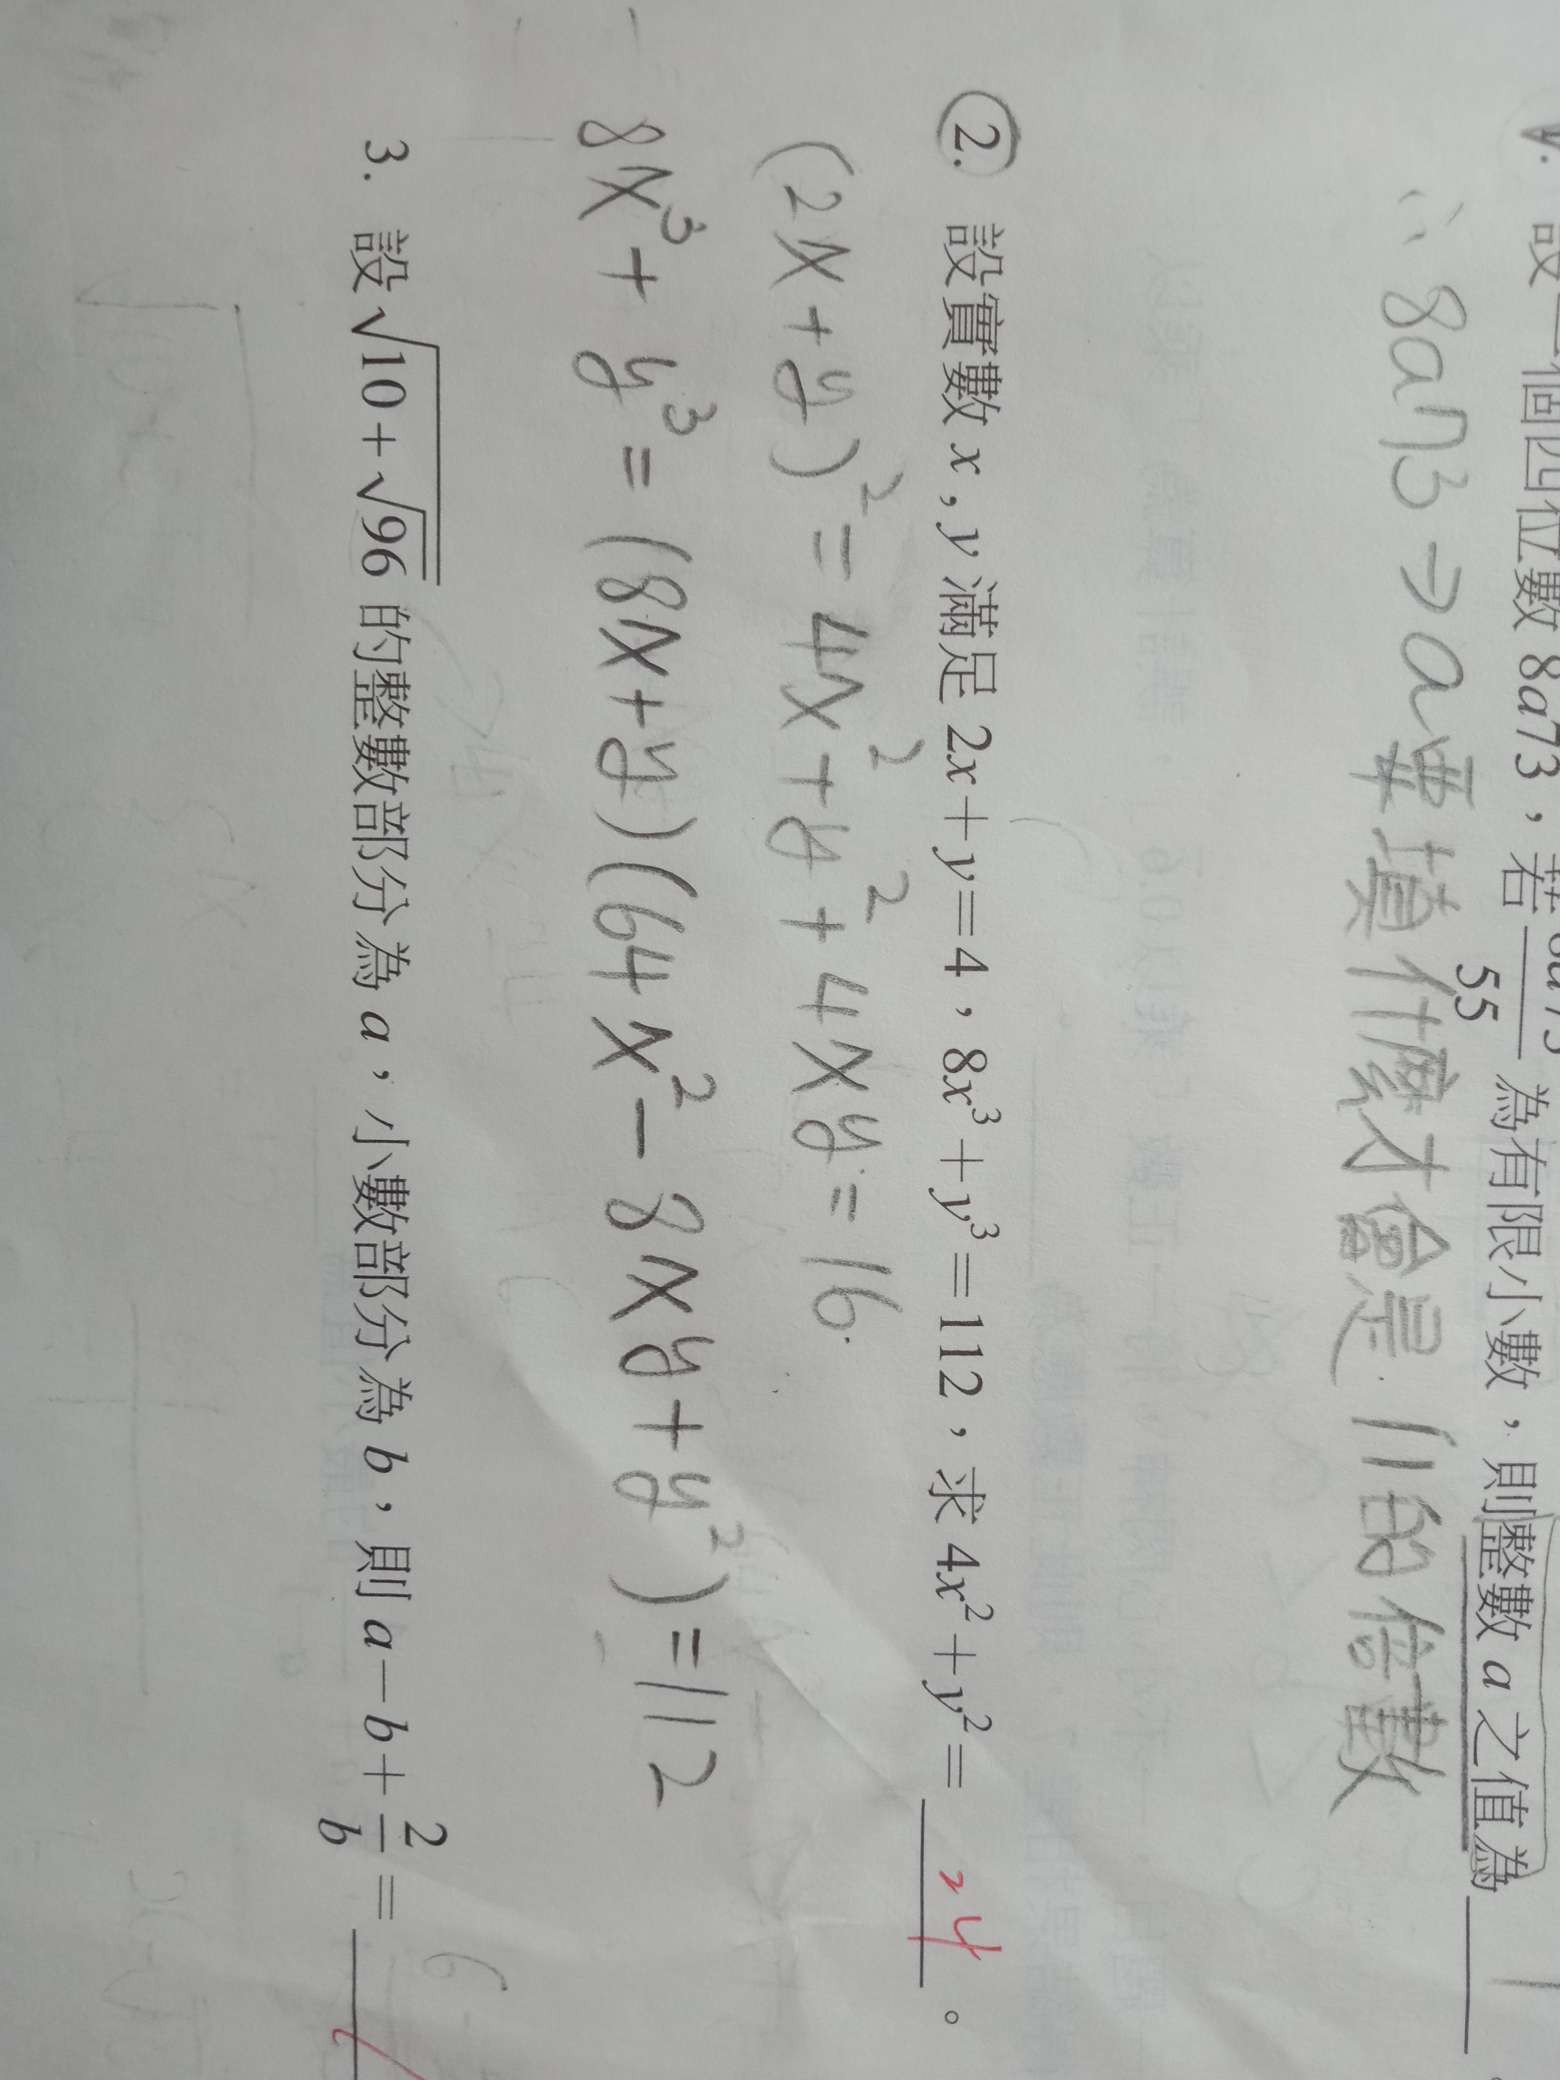 設一個四位數 8a73，若 8a73/55 為有限小數，則整數 a 之值為
∵ 8a73 → a要填什麼才會是 11的倍數
2. 設實數 x , y 滿足 2x+y=4，8x³+y³=112，求 4x²+y²= 24 。
(2x+y)²=4x²+y²+4xy=16
8x³+y³=(8x+y)(64x²-8xy+y²)=112
3. 設 √(10+√96) 的整數部分為 a，小數部分為 b，則 a-b+2/b=